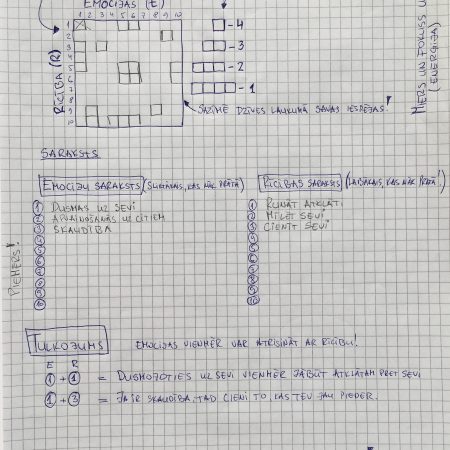 EMOCIJAS (E)
1 2 3 4 5 6 7 8 9 10
RĪCĪBA (R)
1
2
3
4
5
6
7
8
9
10
- 4
- 3
- 2
- 1
SAZĪMĒ DZĪVES LAUKUMĀ SAVAS IESPĒJAS!
MIERS UN FOKUSS U
(ENERĢIJA)
SARAKSTS
PIEMĒRS!
EMOCIJU SARAKSTS (SLIKTĀKAIS, KAS NĀK PRĀTĀ)
1 DUSMAS UZ SEVI
2 APVAINOŠANĀS UZ CITIEM
3 SKAUDĪBA
RĪCĪBAS SARAKSTS (LABĀKAIS, KAS NĀK PRĀTĀ!
1 RUNĀT ATKLĀTI
2 MĪLĒT SEVI
3 CIENĪT SEVI
TULKOJUMS
EMOCIJAS VIENMĒR VAR ATRISINĀT AR RĪCĪBU!
E R
1 + 1 = DUSMOJOTIES UZ SEVI VIENMĒR JĀBŪT ATKLĀTAM PRET SEVI
1 + 3 = JA IR SKAUDĪBA, TAD CIENI TO, KAS TEV JAU PIEDER.